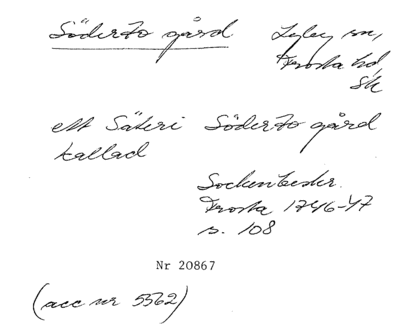 Söderto gård Lyby sn,
Frosta hd,
Sk
ett Säteri Södertо gård
kallad
Sockenbeskr.
Frosta 1746-47
s. 108
Nr 20867
(acc nr 5562)